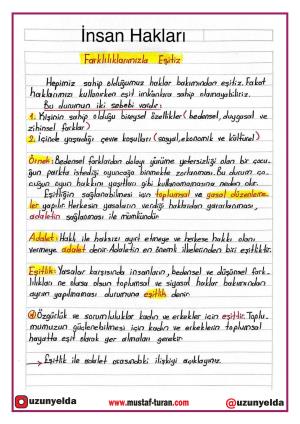 İnsan Hakları
Farklılıklarımızla Eşitiz
Hepimiz sahip olduğumuz haklar bakımından eşitiz. Fakat
haklarımızı kullanırken eşit imkânlara sahip olamayabiliriz.
Bu durumun iki sebebi vardır:
1. Kişinin sahip olduğu bireysel özellikler (bedensel, duygusal ve
zihinsel farklar)
2. İçinde yaşadığı çevre koşulları (sosyal, ekonomik ve kültürel)
Örnek: Bedensel farklardan dolayı yürüme yetersizliği olan bir çocu-
ğun parkta istediği oyuncağa binmekte zorlanması. Bu durum ço-
cuğun oyun hakkını yaşıtları gibi kullanamamasına neden olur.
Eşitliğin sağlanabilmesi için toplumsal ve yasal düzenleme-
ler yapılır. Herkesin yasaların verdiği haklardan yararlanması,
adaletin sağlanması ile mümkündür.
Adalet: Haklı ile haksızı ayırt etmeye ve herkese hakkı olanı
vermeye adalet denir. Adaletin en önemli ilkelerinden biri eşitliktir.
Eşitlik: Yasalar karşısında insanların, bedensel ve düşünsel fark-
lılıkları ne olursa olsun toplumsal ve siyasal haklar bakımından
ayrım yapılmaması durumuna eşitlik denir.
Özgürlük ve sorumluluklar kadın ve erkekler için eşittir. Toplu-
mumuzun güçlenebilmesi için kadın ve erkeklerin toplumsal
hayatta eşit olarak yer almaları gerekir.
→ Eşitlik ile adalet arasındaki ilişkiyi açıklayınız.
uzunyelda
www.mustafa-turan.com
@uzunyelda